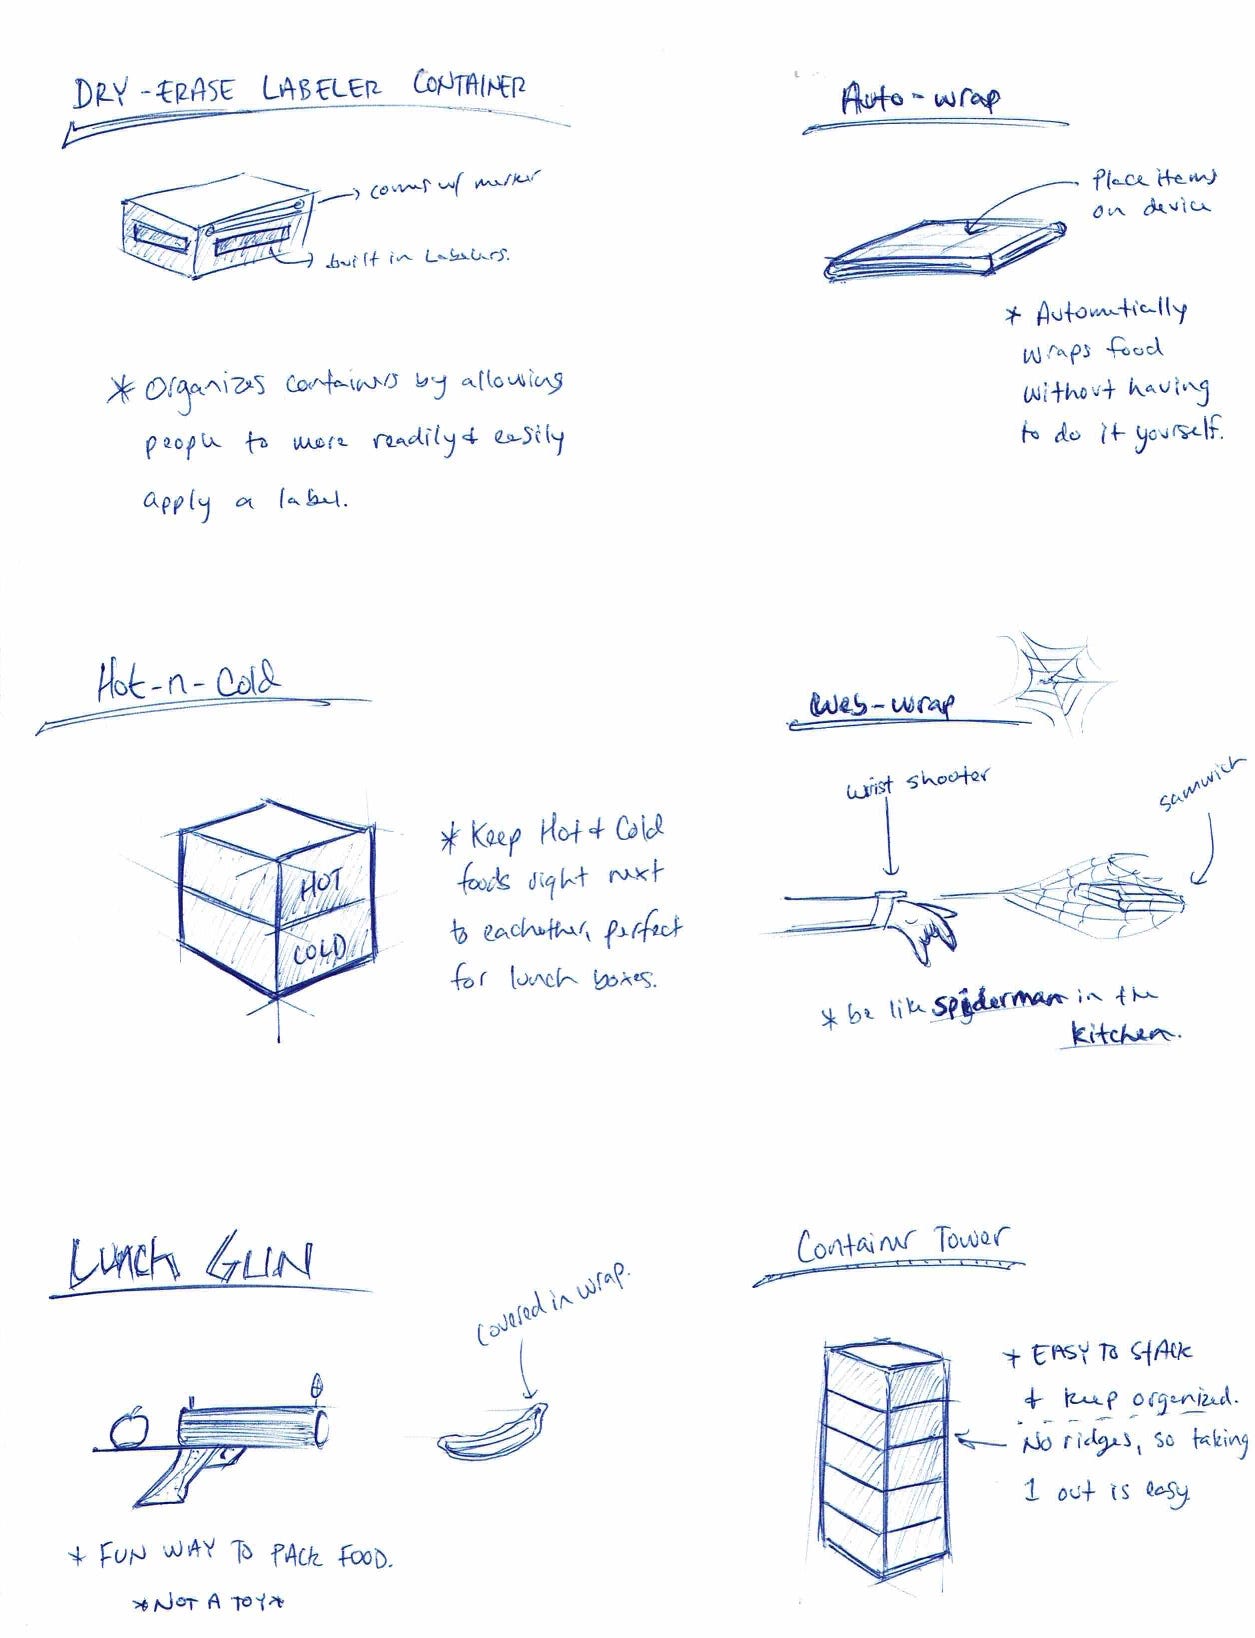 DRY-ERASE LABELER CONTAINER
comes w/ marker
built in Labelers.
* Organizes containers by allowing
people to more readily & easily
apply a label.
Auto-wrap
Place items
on device
* Automatically
wraps food
without having
to do it yourself.
Hot-n-Cold
HOT
COLD
* Keep Hot & Cold
foods right next
to eachother, perfect
for lunch boxes.
Web-wrap
wrist shooter
samwich
* be like spiderman in the
kitchen.
Lunch GUN
covered in wrap.
* FUN WAY TO PACK FOOD.
*NOT A TOY*
Container Tower
* EASY TO STACK
& keep organized.
No ridges, so taking
1 out is easy